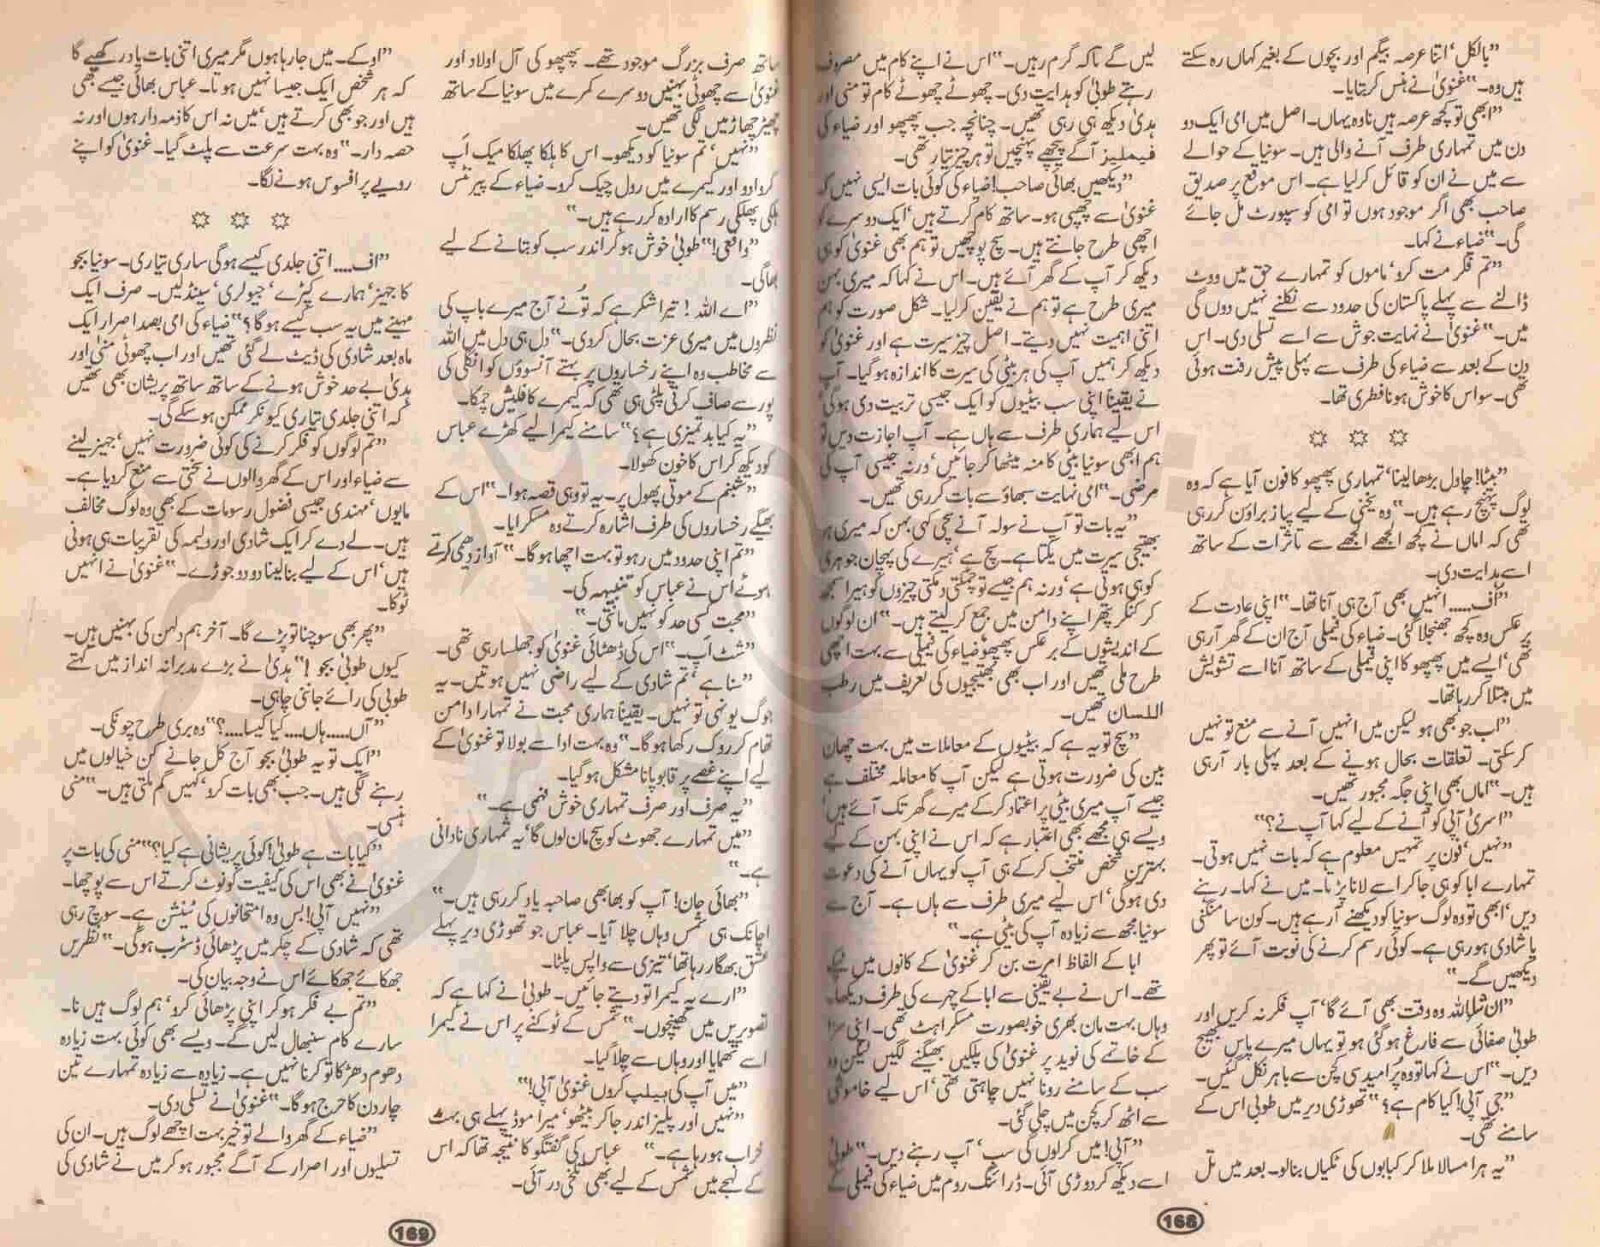 ”بالکل‘ اتنا عرصہ بیگم اور بچوں کے بغیر کہاں رہ سکتے
ہیں وہ۔“ غنویٰ نے ہنس کر بتایا۔
”ابھی تو کچھ عرصہ ہیں نا وہ یہاں۔ اصل میں امی ایک دو
دن میں تمہاری طرف آنے والی ہیں۔ سونیا کے حوالے
سے میں نے ان کو قائل کر لیا ہے۔ اس موقع پر صدیق
صاحب بھی اگر موجود ہوں تو امی کو سپورٹ مل جائے
گی۔“ ضیاء نے کہا۔
”تم فکر مت کرو‘ ماموں کو تمہارے حق میں ووٹ
ڈالنے سے پہلے پاکستان کی حدود سے نکلنے نہیں دوں گی
میں۔“ غنویٰ نے نہایت جوش سے اسے تسلی دی۔ اس
دن کے بعد سے ضیاء کی طرف سے پہلی پیش رفت ہوئی
تھی۔ سو اس کا خوش ہونا فطری تھا۔
”بیٹا! چاول بڑھا لینا‘ تمہاری پھپھو کا فون آیا ہے کہ وہ
لوگ پہنچ رہے ہیں۔“ وہ یخنی کے لیے پیاز براؤن کر رہی
تھی کہ اماں نے کچھ الجھے الجھے سے تاثرات کے ساتھ
اسے ہدایت دی۔
”اُف..... انہیں بھی آج ہی آنا تھا۔“ اپنی عادت کے
برعکس وہ کچھ جھنجلا گئی۔ ضیاء کی فیملی آج ان کے گھر آ رہی
تھی‘ ایسے میں پھپھو کا اپنی فیملی کے ساتھ آنا اسے تشویش
میں مبتلا کر رہا تھا۔
”اب جو بھی ہو لیکن میں انہیں آنے سے منع تو نہیں
کر سکتی۔ تعلقات بحال ہونے کے بعد پہلی بار آ رہی
ہیں۔“ اماں بھی اپنی جگہ مجبور تھیں۔
”اسریٰ آپی کو آنے کے لیے کہا آپ نے؟“
”نہیں‘ فون پر تمہیں معلوم ہے کہ بات نہیں ہوتی۔
تمہارے ابا کو ہی جا کر اسے لانا پڑتا۔ میں نے کہا۔ رہنے
دیں‘ ابھی تو وہ لوگ سونیا کو دیکھنے آ رہے ہیں۔ کون سا منگنی
یا شادی ہو رہی ہے۔ کوئی رسم کرنے کی نوبت آئے تو پھر
دیکھیں گے۔“
”ان شاء اللہ وہ وقت بھی آئے گا‘ آپ فکر نہ کریں اور
طوبیٰ صفائی سے فارغ ہو گئی ہو تو یہاں میرے پاس بھیج
دیں۔“ اس نے کہا تو وہ پر امید سی کچن سے باہر نکل گئیں۔
”جی آپی! کیا کام ہے؟“ تھوڑی دیر میں طوبیٰ اس کے
سامنے تھی۔
”یہ ہرا مسالا ملا کر کبابوں کی ٹکیاں بنا لو۔ بعد میں تل
لیں گے تا کہ گرم رہیں۔“ اس نے اپنے کام میں مصروف
رہتے طوبیٰ کو ہدایت دی۔ چھوٹے چھوٹے کام تو منی اور
ہدیٰ دیکھ ہی رہی تھیں۔ چنانچہ جب پھپھو اور ضیاء کی
فیملیز آگے پیچھے پہنچیں تو ہر چیز تیار تھی۔
”دیکھیں بھائی صاحب! ضیاء کی کوئی بات ایسی نہیں کہ
غنویٰ سے چھپی ہو۔ ساتھ کام کرتے ہیں‘ ایک دوسرے کو
اچھی طرح جانتے ہیں۔ سچ پوچھیں تو ہم بھی غنویٰ کو ہی
دیکھ کر آپ کے گھر آئے ہیں۔ اس نے کہا کہ میری بہن
میری طرح ہے تو ہم نے یقین کر لیا۔ شکل صورت کو ہم
اتنی اہمیت نہیں دیتے۔ اصل چیز سیرت ہے اور غنویٰ کو
دیکھ کر ہمیں آپ کی ہر بیٹی کی سیرت کا اندازہ ہو گیا۔ آپ
نے یقیناً اپنی سب بیٹیوں کو ایک جیسی تربیت دی ہو گی‘
اس لیے ہماری طرف سے ہاں ہے۔ آپ اجازت دیں تو
ہم ابھی سونیا بیٹی کا منہ میٹھا کر جائیں‘ ورنہ جیسی آپ کی
مرضی۔“ امی نہایت سبھاؤ سے بات کر رہی تھیں۔
”یہ بات تو آپ نے سولہ آنے سچی کہی بہن کہ میری ہر
بھتیجی سیرت میں یکتا ہے۔ سچ ہے‘ ہیرے کی پہچان جوہری
کو ہی ہوتی ہے‘ ورنہ ہم جیسے تو چمکتی دمکتی چیزوں کو ہیرا سمجھ
کر کنکر پتھر اپنے دامن میں جمع کر لیتے ہیں۔“ ان لوگوں
کے اندیشوں کے برعکس پھپھو‘ ضیاء کی فیملی سے بہت اچھی
طرح ملی تھیں اور اب بھی بھتیجیوں کی تعریف میں رطب
اللسان تھیں۔
”سچ تو یہ ہے کہ بیٹیوں کے معاملات میں بہت چھان
بین کی ضرورت ہوتی ہے لیکن آپ کا معاملہ مختلف ہے
جیسے آپ میری بیٹی پر اعتماد کر کے میرے گھر تک آئے ہیں‘
ویسے ہی مجھے بھی اعتبار ہے کہ اس نے اپنی بہن کے لیے
بہترین شخص منتخب کر کے ہی آپ کو یہاں آنے کی دعوت
دی ہو گی‘ اس لیے میری طرف سے ہاں ہے۔ آج سے
سونیا مجھ سے زیادہ آپ کی بیٹی ہے۔“
ابا کے الفاظ امرت بن کر غنویٰ کے کانوں میں ٹپکے
تھے۔ اس نے بے یقینی سے ابا کے چہرے کی طرف دیکھا۔
وہاں بہت مان بھری خوبصورت مسکراہٹ تھی۔ اپنی سزا
کے خاتمے کی نوید پر غنویٰ کی پلکیں بھیگنے لگیں لیکن وہ
سب کے سامنے رونا نہیں چاہتی تھی‘ اس لیے خاموشی
سے اٹھ کر کچن میں چلی گئی۔
”آپی! میں کر لوں گی سب‘ آپ رہنے دیں۔“ طوبیٰ
اسے دیکھ کر دوڑی آئی۔ ڈرائنگ روم میں ضیاء کی فیملی کے
168
ساتھ صرف بزرگ موجود تھے۔ پھپھو کی آل اولاد اور
غنویٰ سے چھوٹی بہنیں دوسرے کمرے میں سونیا کے ساتھ
چھیڑ چھاڑ میں لگی تھیں۔
”نہیں‘ تم سونیا کو دیکھو۔ اس کا ہلکا پھلکا میک اَپ
کروا دو اور کیمرے میں رول چیک کرو۔ ضیاء کے پیرنٹس
ہلکی پھلکی رسم کا ارادہ کر رہے ہیں۔“
”واقعی!“ طوبیٰ خوش ہو کر اندر سب کو بتانے کے لیے
بھاگی۔
”اے اللہ! تیرا شکر ہے کہ تُو نے آج میرے باپ کی
نظروں میں میری عزت بحال کر دی۔“ دل ہی دل میں اللہ
سے مخاطب وہ اپنے رخساروں پر بہتے آنسوؤں کو انگلی کی
پور سے صاف کرتی پلٹی ہی تھی کہ کیمرے کا فلیش چمکا۔
”یہ کیا بدتمیزی ہے؟“ سامنے کیمرا لیے کھڑے عباس
کو دیکھ کر اس کا خون کھولا۔
”شبنم کے موتی پھول پر۔ یہ تو وہی قصہ ہوا۔“ اس کے
بھیگے رخساروں کی طرف اشارہ کرتے وہ مسکرایا۔
”تم اپنی حدود میں رہو تو بہت اچھا ہو گا۔“ آواز دھیمی کرتے
ہوئے اس نے عباس کو تنبیہہ کی۔
”محبت کسی حد کو نہیں مانتی۔“
”شٹ اَپ۔“ اس کی ڈھٹائی غنویٰ کو جھلسا رہی تھی۔
”سنا ہے‘ تم شادی کے لیے راضی نہیں ہوتیں۔ یہ
جوگ یونہی تو نہیں۔ یقیناً ہماری محبت نے تمہارا دامن
تھام کر روک رکھا ہو گا۔“ وہ بہت ادا سے بولا تو غنویٰ کے
لیے اپنے غصے پر قابو پانا مشکل ہو گیا۔
”یہ صرف اور صرف تمہاری خوش فہمی ہے۔“
”میں تمہارے جھوٹ کو سچ مان لوں گا‘ یہ تمہاری نادانی
ہے۔“
”بھائی جان! آپ کو بھابھی صاحبہ یاد کر رہی ہیں۔“
اچانک ہی شمس وہاں چلا آیا۔ عباس جو تھوڑی دیر پہلے
عشق بھگار رہا تھا‘ تیزی سے واپس پلٹا۔
”ارے یہ کیمرا تو دیتے جائیں۔ طوبیٰ نے کہا ہے کہ
تصویریں میں کھینچوں۔“ شمس کے ٹوکنے پر اس نے کیمرا
اسے تھمایا اور وہاں سے چلا گیا۔
”میں آپ کی ہیلپ کروں غنویٰ آپی!“
”نہیں اور پلیز اندر جا کر بیٹھو‘ میرا موڈ پہلے ہی بہت
خراب ہو رہا ہے۔“ عباس کی گفتگو کا نتیجہ تھا کہ اس
کے لہجے میں شمس کے لیے بھی تلخی در آئی۔
”اوکے۔ میں جا رہا ہوں مگر میری اتنی بات یاد رکھیے گا
کہ ہر شخص ایک جیسا نہیں ہوتا۔ عباس بھائی جیسے بھی
ہیں اور جو بھی کرتے ہیں‘ میں نہ اس کا ذمہ دار ہوں اور نہ
حصہ دار۔“ وہ بہت سرعت سے پلٹ گیا۔ غنویٰ کو اپنے
رویے پر افسوس ہونے لگا۔
”اف.... اتنی جلدی کیسے ہو گی ساری تیاری۔ سونیا بجو
کا جہیز‘ ہمارے کپڑے‘ جیولری‘ سینڈلیں۔ صرف ایک
مہینے میں یہ سب کیسے ہو گا؟“ ضیاء کی امی بصد اصرار ایک
ماہ بعد شادی کی ڈیٹ لے گئی تھیں اور اب چھوٹی منی اور
ہدیٰ بے حد خوش ہونے کے ساتھ ساتھ پریشان بھی تھیں
کہ اتنی جلدی تیاری کیونکر ممکن ہو سکے گی۔
”تم لوگوں کو فکر کرنے کی کوئی ضرورت نہیں‘ جہیز لینے
سے ضیاء اور اس کے گھر والوں نے سختی سے منع کر دیا ہے۔
مایوں‘ مہندی جیسی فضول رسومات کے بھی وہ لوگ مخالف
ہیں۔ لے دے کر ایک شادی اور ولیمہ کی تقریبات ہی ہونی
ہیں‘ اس کے لیے بنا لینا دو دو جوڑے۔“ غنویٰ نے انہیں
ٹوکا۔
”پھر بھی سوچنا تو پڑے گا۔ آخر ہم دلہن کی بہنیں ہیں۔
کیوں طوبیٰ بجو!“ ہدیٰ نے بڑے مدبرانہ انداز میں کہتے
طوبیٰ کی رائے جاننی چاہی۔
”آں..... ہاں.... کیا کیسا....؟“ وہ بری طرح چونکی۔
”ایک تو یہ طوبیٰ بجو آج کل جانے کن خیالوں میں
رہنے لگی ہیں۔ جب بھی بات کرو‘ کہیں گم ملتی ہیں۔“ منی
ہنسی۔
”کیا بات ہے طوبیٰ! کوئی پریشانی ہے کیا؟“ منی کی بات پر
غنویٰ نے بھی اس کی کیفیت کو نوٹ کرتے اس سے پوچھا۔
”نہیں آپی! بس وہ امتحانوں کی ٹینشن ہے۔ سوچ رہی
تھی کہ شادی کے چکر میں پڑھائی ڈسٹرب ہو گی۔“ نظریں
جھکائے جھکائے اس نے وجہ بیان کی۔
”تم بے فکر ہو کر اپنی پڑھائی کرو‘ ہم لوگ ہیں نا۔
سارے کام سنبھال لیں گے۔ ویسے بھی کوئی بہت زیادہ
دھوم دھڑکا تو کرنا نہیں ہے۔ زیادہ سے زیادہ تمہارے تین
چار دن کا حرج ہو گا۔“ غنویٰ نے تسلی دی۔
”ضیاء کے گھر والے تو خیر بہت اچھے لوگ ہیں۔ ان کی
تسلیوں اور اصرار کے آگے مجبور ہو کر میں نے شادی کی
169